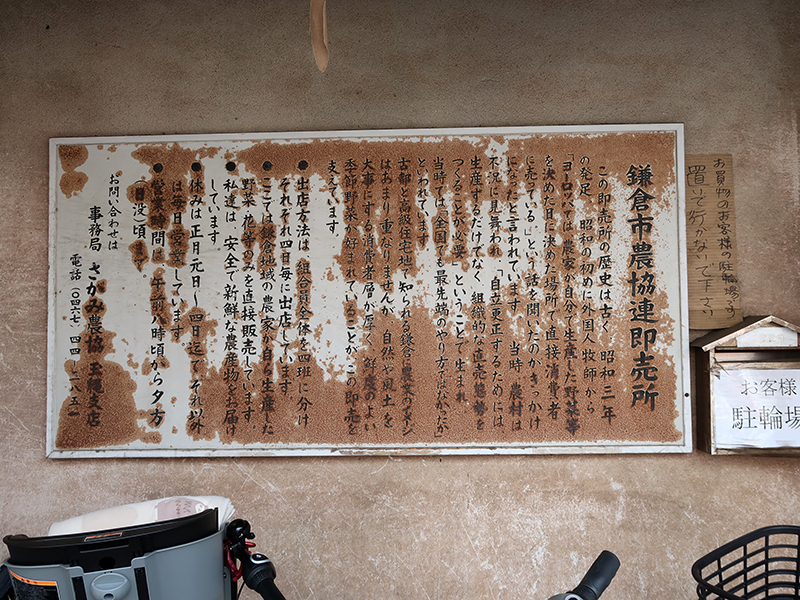 鎌倉市農協連即売所
この即売所の歴史は古く、昭和三年
の発足。昭和の初めに外国人牧師から
「ヨーロッパでは、農家が自分で生産した野菜等
を決めた日に決めた場所で直接消費者
に売っている」という話を聞いたのがきっかけ
になったと言われています。当時、農村は
不況に見舞われ、「自立更正するためには
生産するだけでなく、組織的な直売態勢を
つくることが必要」ということで生まれ、
当時では「全国でも最先端のやり方ではなかったか」
といわれています。
古都や高級住宅地で知られる鎌倉に農業のイメージ
はあまり重なりませんが、自然や風土を
大事にする消費者層が厚く、鮮度のよい
季節野菜が好まれていることが、この即売を
支えています。
●出店方法は、組合員全体を四班に分け
それぞれ四日毎に出店しています。
●ここでは鎌倉地域の農家が自ら生産した
野菜・花等のみを直接販売しています。
●私達は、安全で新鮮な農産物をお届け
しています。
●休みは正月元日〜四日迄で、それ以外
は毎日営業しています。
●営業時間は、午前八時頃から夕方
（日没）頃まで
お問い合わせは
事務局 さがみ農協 玉縄支店
電話（〇四六七）四四－三八五一
お買物のお客様の駐輪場です
置いて行かないで下さい
お客様
駐輪場